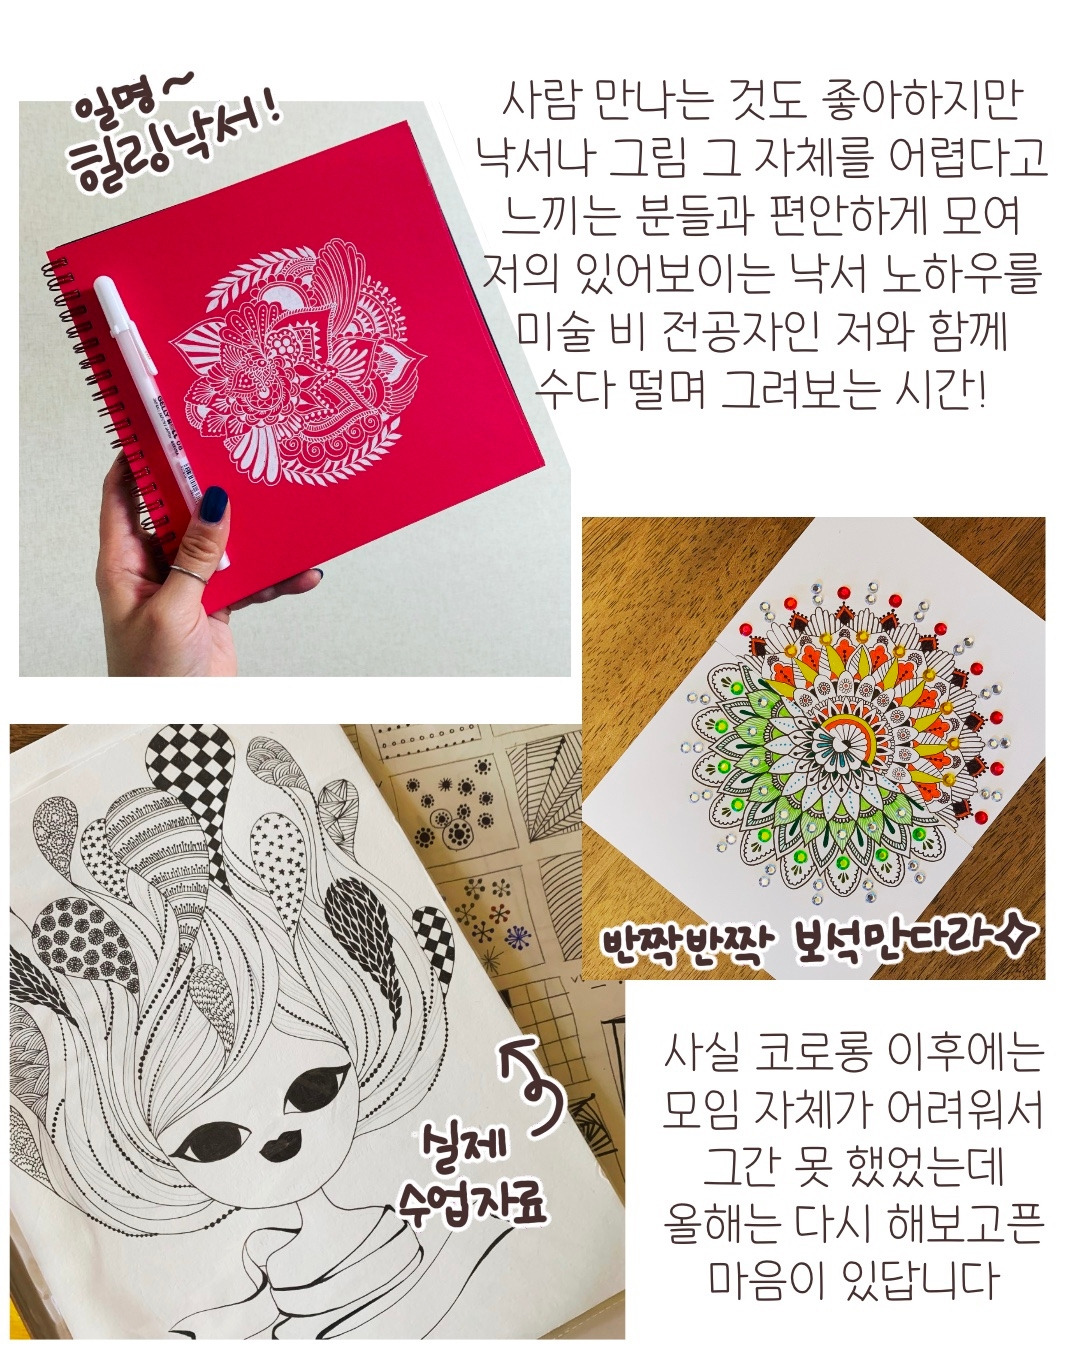 일명~
힐링낙서!
사람 만나는 것도 좋아하지만
낙서나 그림 그 자체를 어렵다고
느끼는 분들과 편안하게 모여
저의 있어보이는 낙서 노하우를
미술 비 전공자인 저와 함께
수다 떨며 그려보는 시간!
GELLY ROLL
반짝반짝 보석만다라
실제
수업자료
사실 코로롱 이후에는
모임 자체가 어려워서
그간 못 했었는데
올해는 다시 해보고픈
마음이 있답니다